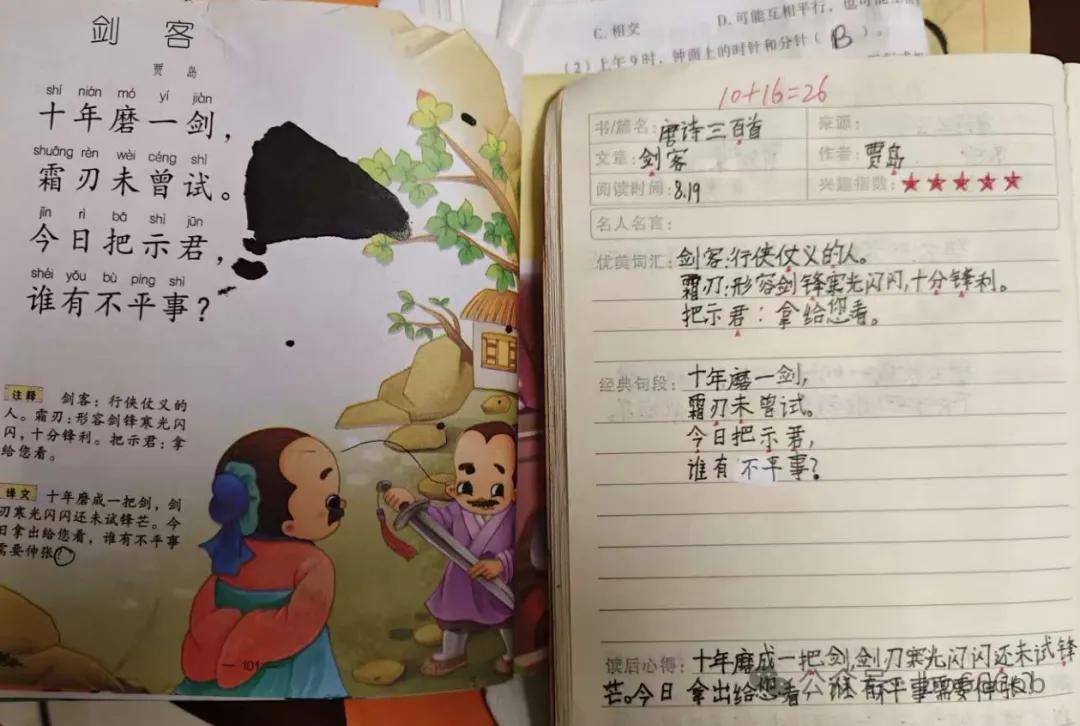 剑 客
贾 岛
shí nián mó yí jiàn
十年磨一剑，
shuāng rèn wèi céng shì
霜刃未曾试。
jīn rì bǎ shì jūn
今日把示君，
shéi yǒu bù píng shì
谁有不平事？
注释 剑客：行侠仗义的
人。霜刃：形容剑锋寒光闪
闪，十分锋利。把示君：拿
给您看。
译文 十年磨成一把剑，剑
刃寒光闪闪还未试锋芒。今
日拿出给您看，谁有不平事
需要伸张
101
C. 相交 D. 可能互相平行，也可能
（2）上午9时，钟面上的时针和分针（ B ）。
10+16=26
书/篇名：唐诗三百首 来源：
文章：剑客 作者：贾岛
阅读时间：8.19 兴趣指数：★★★★★
名人名言：
优美词汇：剑客：行侠仗义的人。
霜刃：形容剑锋寒光闪闪，十分锋利。
把示君：拿给您看。
经典句段：十年磨一剑，
霜刃未曾试。
今日把示君，
谁有不平事？
读后心得：十年磨成一把剑，剑刃寒光闪闪还未试锋
芒。今日拿出给您看 谁有不平事需要伸张